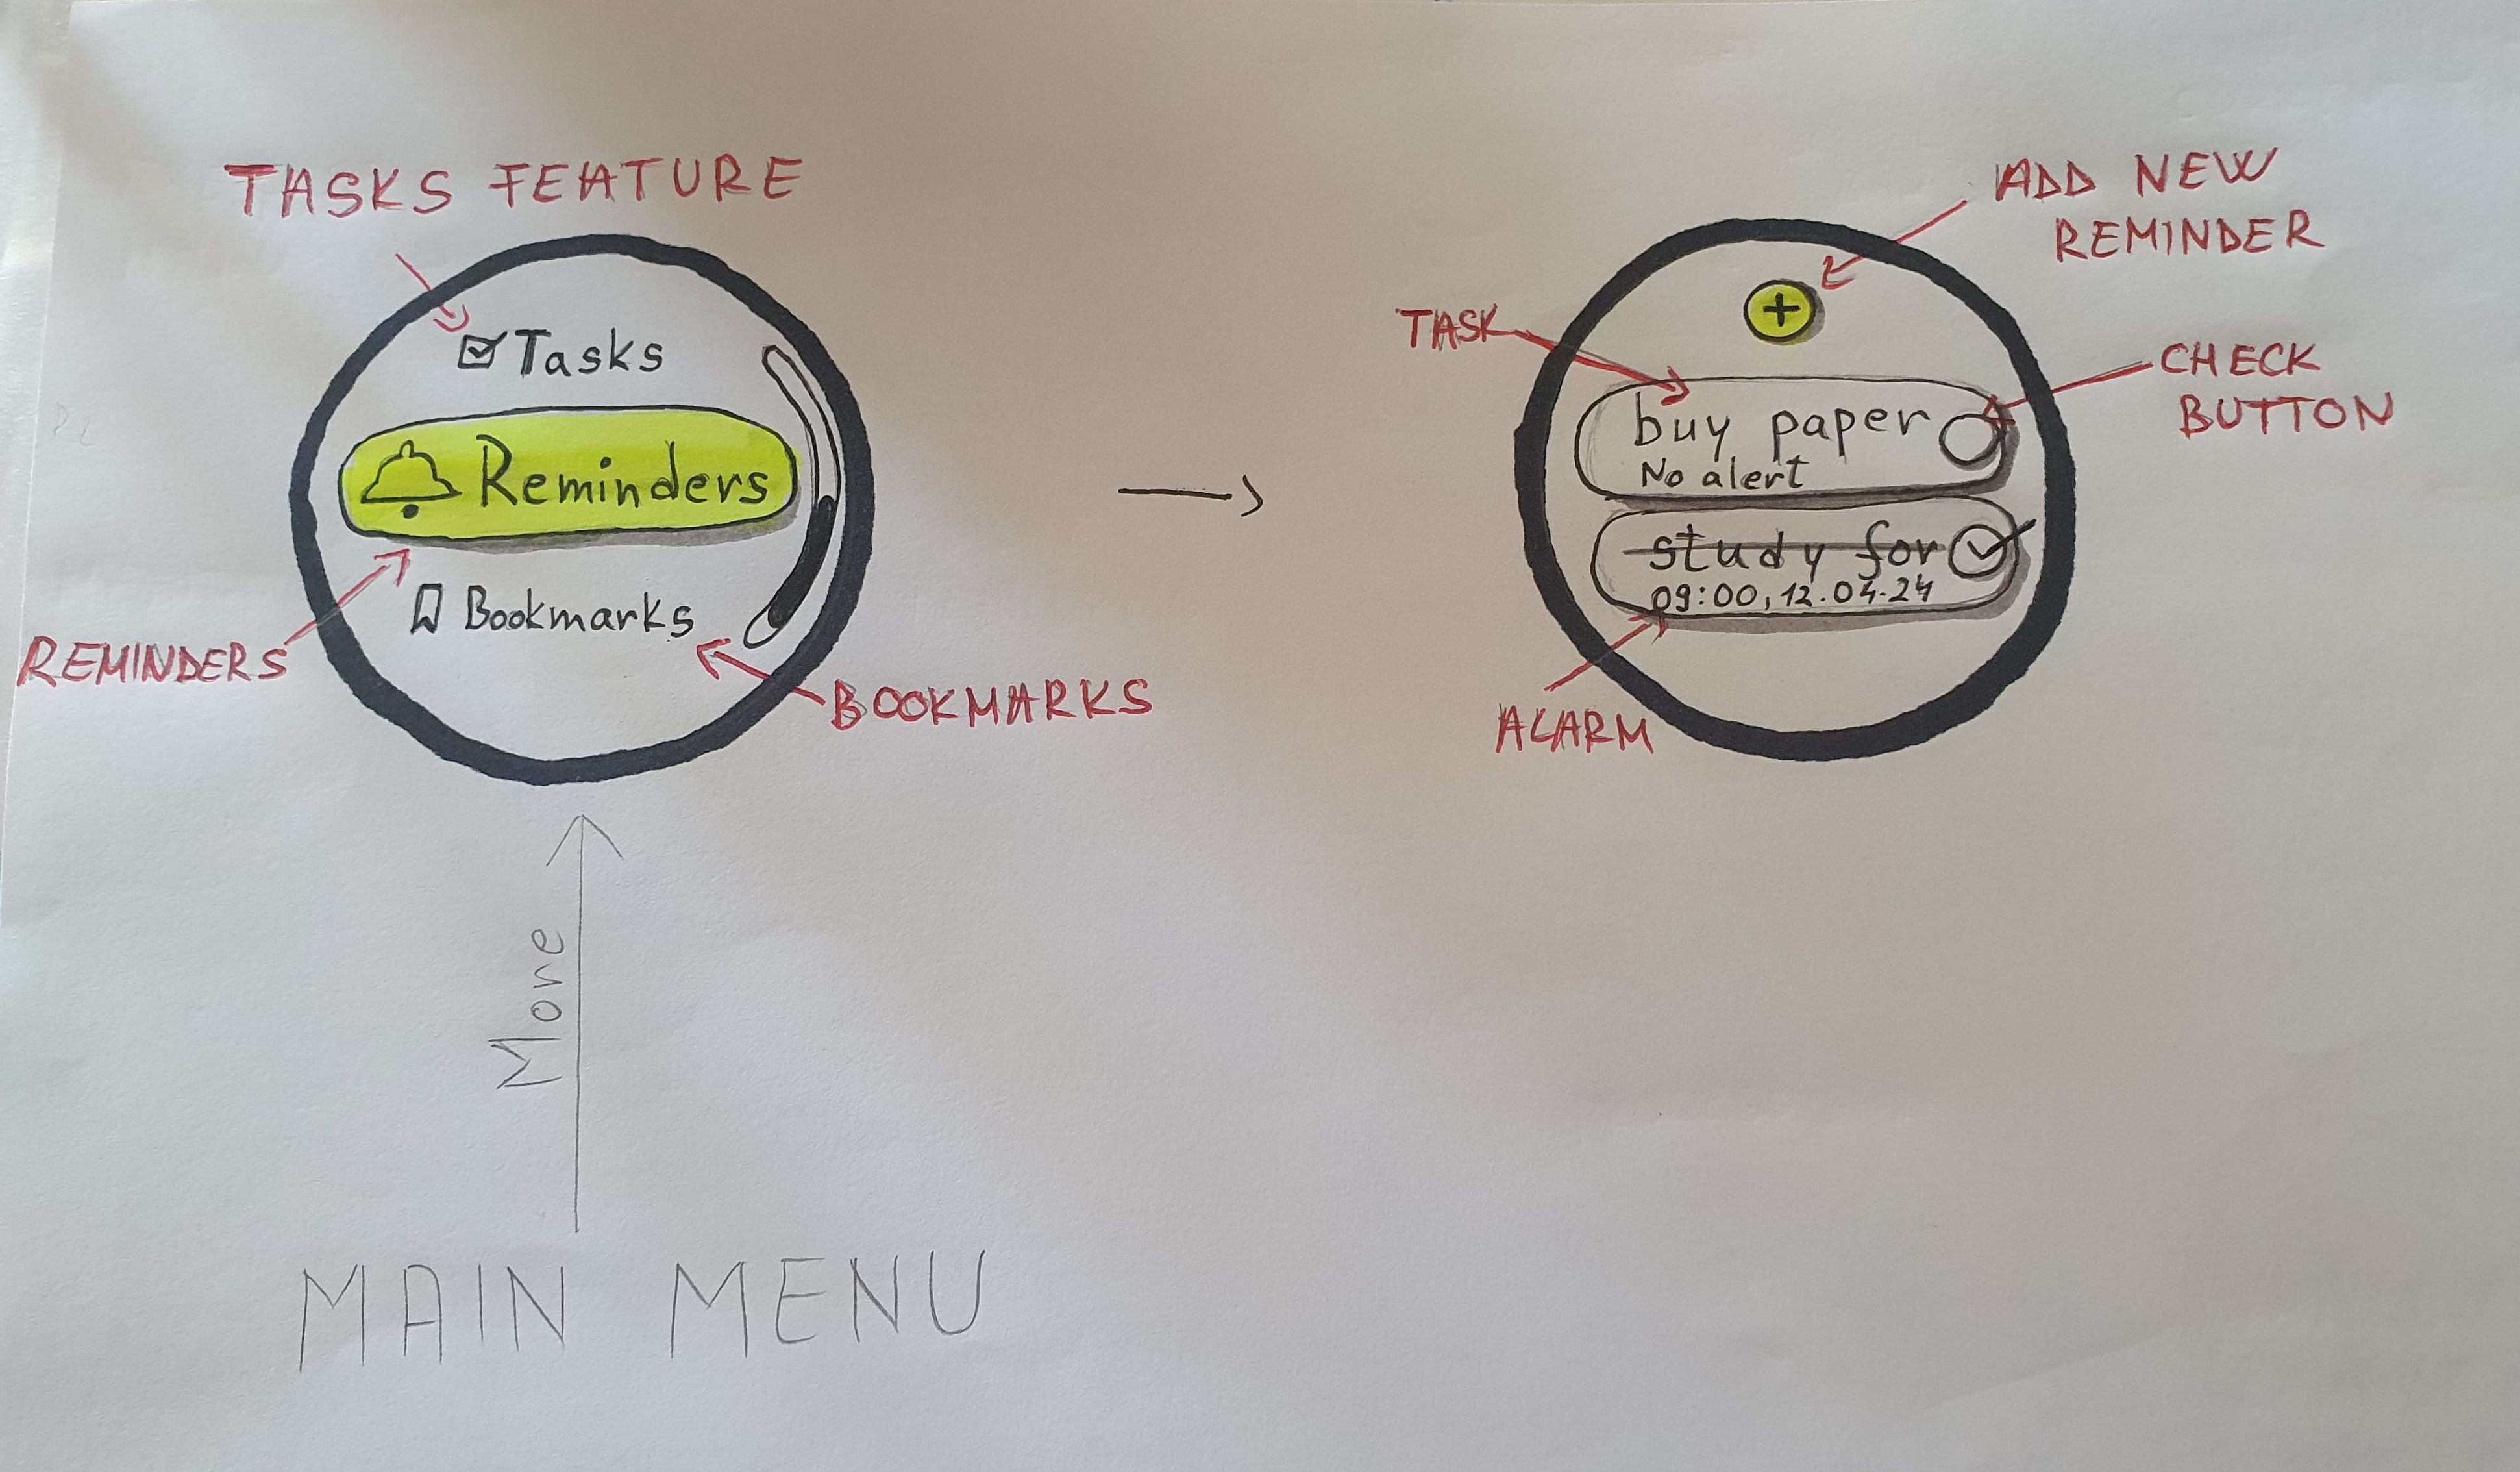 TASKS FEATURE
Tasks
Reminders
Bookmarks
REMINDERS
BOOKMARKS
ADD NEW
REMINDER
+
TASK
CHECK
BUTTON
buy paper
No alert
study for
09:00, 12.04.24
ALARM
More
MAIN MENU